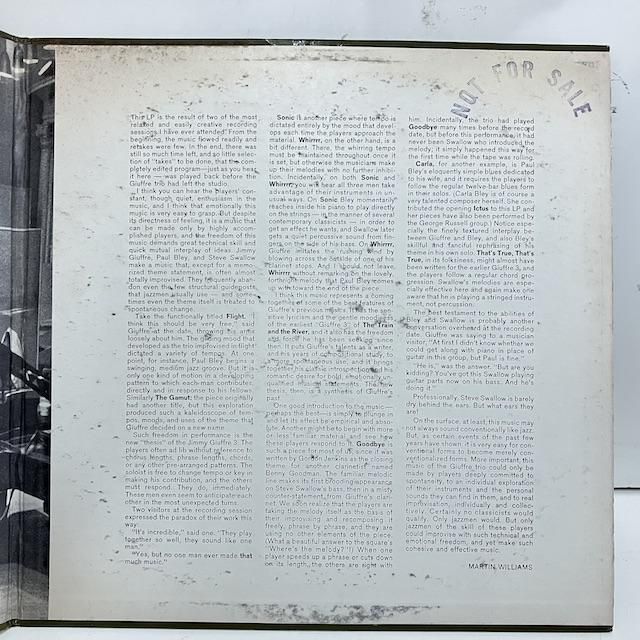 NOT FOR SALE
This LP is the result of two of the most
relaxed and easily creative recording
sessions I have ever attended. From the
beginning, the music flowed readily and
retakes were few. In the end, there was
still so much time left, and so little selec-
tion of "takes" to be done, that the com-
pletely edited program—just as you hear
it here — was played back before the
Giuffre trio had left the studio.
I think you can hear the players' con-
stant, though quiet, enthusiasm in the
music, and I think that emotionally this
music is very easy to grasp. But despite
its directness of feeling, it is a music that
can be made only by highly accom-
plished players, and the freedom of this
music demands great technical skill and
quick mutual interplay of ideas. Jimmy
Giuffre, Paul Bley, and Steve Swallow
make a music that, except for a memo-
rized theme statement, is often almost
totally improvised. They frequently aban-
don even the few structural guideposts
that jazzmen usually use — and some-
times even the theme itself is treated to
spontaneous change.
Take the functionally titled Flight. "I
think this should be very free," said
Giuffre at the date, throwing his arms
loosely about him. The giving mood that
developed as the trio improvised in flight
dictated a variety of tempos. At one
point, for instance, Paul Bley begins a
swinging, medium jazz groove. But it is
only one kind of motion in a developing
pattern to which each man contributes
directly and in response to his fellows.
Similarly The Gamut; the piece originally
had another title, but this exploration
produced such a kaleidoscope of tem-
pos, moods, and uses of the theme that
Giuffre decided on a new name.
Such freedom in performance is the
new "thesis" of the Jimmy Giuffre 3. The
players often ad lib without reference to
chorus lengths, phrase lengths, chords,
or any other pre-arranged patterns. The
soloist is free to change tempo or key in
making his contribution, and the others
must respond. They do, immediately.
These men even seem to anticipate each
other in the most unexpected turns.
Two visitors at the recording session
expressed the paradox of their work this
way:
"It's incredible," said one. "They play
together so well, they sound like one
man."
"Yes, but no one man ever made that
much music."
Sonic is another piece where tempo is
dictated entirely by the mood that devel-
ops each time the players approach the
material. Whirrrr, on the other hand, is a
bit different. There, the whirring tempo
must be maintained throughout once it
is set, but otherwise the musicians make
up their melodies with no further inhibi-
tion. Incidentally, on both Sonic and
Whirrrr, you will hear all three men take
advantage of their instruments in un-
usual ways. On Sonic Bley momentarily
reaches inside his piano to play directly
on the strings — in the manner of several
contemporary classicists — in order to
get an effect he wants, and Swallow later
gets a quiet percussive sound from fin-
gers on the side of his bass. On Whirrrr,
Giuffre imitates the rushing wind by
blowing across the outside of one of his
clarinet stops. And I should not leave
Whirrrr without remarking on the lovely,
forthright melody that Paul Bley comes
up with toward the end of the piece.
I think this music represents a coming
together of one of the best features of
Giuffre's previous music. It has the sen-
sitive lyricism and the gentle moodiness
of the earliest "Giuffre 3" of The Train
and the River, and it also has the freedom
and force he has been seeking since
then. It puts Giuffre's talents as a writer,
and his years of compositional study, to
a more spontaneous use, and it brings
together his earlier introspection and his
romantic desire for bold, emotionally un-
qualified musical statements. The new
thesis, then, is a synthesis of Giuffre's
past.
One good introduction to the music—
perhaps the best—is simply to plunge in
and let its effect be empirical and abso-
lute. Another might be to begin with more
or less familiar material and see how
these players respond to it. Goodbye is
such a piece for most of us, since it was
written by Gordon Jenkins as the closing
theme for another clarinetist named
Benny Goodman. The familiar melodic
line makes its first brooding appearance
on Steve Swallow's bass, then in a misty
counter-statement from Giuffre's clari-
net. We soon realize that the players are
taking the melody itself as the basis of
their improvising and recomposing it
freely, phrase by phrase, and they are
using no other elements of the piece.
(What a beautiful answer to the square's
"Where's the melody?"!) When one
player speeds up a phrase or cuts down
on its length, the others are right with
him. Incidentally, the trio had played
Goodbye many times before the record
date, but before this performance, it had
never been Swallow who introduced the
melody; it simply happened this way for
the first time while the tape was rolling.
Carla, for another example, is Paul
Bley's eloquently simple blues dedicated
to his wife, and it requires the players to
follow the regular twelve-bar blues form
in their solos. (Carla Bley is of course a
very talented composer herself. She con-
tributed the opening Ictus to this LP and
her pieces have also been performed by
the George Russell group.) Notice espe-
cially, the finely textured interplay be-
tween Giuffre and Bley, and also Bley's
skillful and fanciful rephrasing of his
theme in his own solo. That's True, That's
True, in its folksiness, might almost have
been written for the earlier Giuffre 3, and
the players follow a regular chord pro-
gression. Swallow's melodies are espe-
cially effective here and again make one
aware that he is playing a stringed instru-
ment, not percussion.
The best testament to the abilities of
Bley and Swallow is probably another
conversation overheard at the recording
date. Giuffre was saying to a musician
visitor, "At first I didn't know whether we
could get along with piano in place of
guitar in this group, but Paul is fine."
"He is," was the answer. "But are you
kidding? You've got this Swallow playing
guitar parts now on his bass. And he's
doing it."
Professionally, Steve Swallow is barely
dry behind the ears. But what ears they
are!
On the surface, at least, this music may
not always sound conventionally like jazz.
But, as certain events of the past few
years have shown, it is very easy for con-
ventional forms to become merely con-
ventionalized forms. More important, this
music of the Giuffre trio could only be
made by players deeply committed to
spontaneity, to an individual exploration
of their instruments and the personal
sounds they can find in them, and to real
improvisation, individually and collec-
tively. Certainly no classicists would
qualify. Only jazzmen would. But only
jazzmen of the skill of these players
could improvise with such technical and
emotional freedom, and yet make such
cohesive and effective music.
MARTIN WILLIAMS